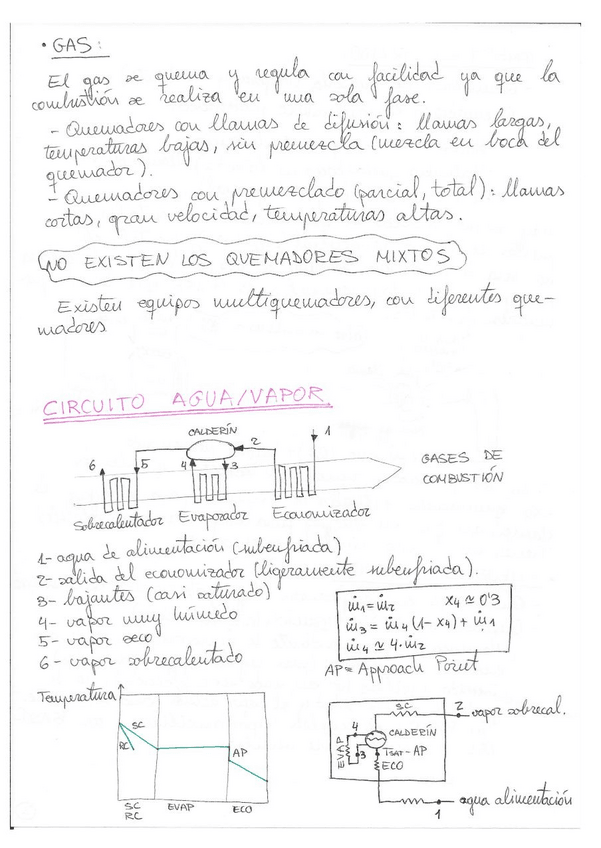 • GAS:
El gas se quema y regula con facilidad ya que la
combustión se realiza en una sola fase.
- Quemadores con llamas de difusión: llamas largas,
temperaturas bajas, sin premezcla (mezcla en boca del
quemador).
- Quemadores con premezclado (parcial, total): llamas
cortas, gran velocidad, temperaturas altas.
NO EXISTEN LOS QUEMADORES MIXTOS
Existen equipos multiquemadores, con diferentes que-
madores
CIRCUITO AGUA/VAPOR.
CALDERÍN
6 5 4 3 2 1
GASES DE
COMBUSTIÓN
Sobrecalentador Evaporador Economizador
1- agua de alimentación (subenfriada)
2- salida del economizador (ligeramente subenfriada).
3- bajantes (casi saturado)
4- vapor muy húmedo
5- vapor seco
6- vapor sobrecalentado
ṁ1 = ṁ2 x4 ≃ 0'3
ṁ3 = ṁ4 (1-x4) + ṁ1
ṁ4 ≃ 4·ṁ2
AP= Approach Point
Temperatura
SC
RC
AP
SC EVAP ECO
RC
SC
2 vapor sobrecal.
4
CALDERÍN
EVAP
3
TSAT-AP
ECO
agua alimentación
1